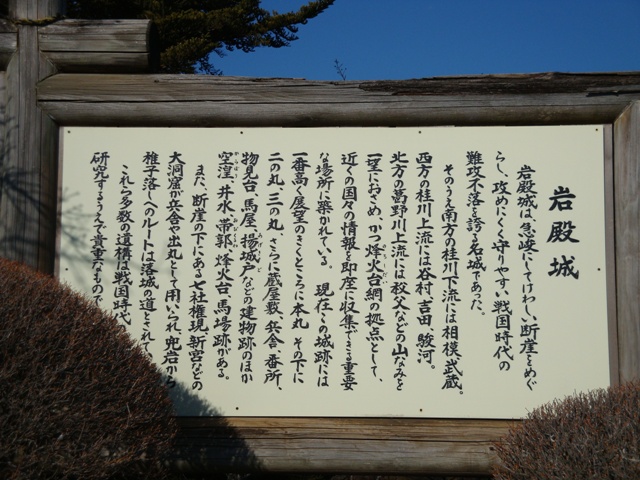 岩殿城
岩殿城は、急峻にしてけわしい断崖をめぐ
らし、攻めにくく守りやすい戦国時代の
難攻不落を誇る名城であった。
そのうえ南方の桂川下流には相模、武蔵。
西方の桂川上流には谷村、吉田、駿河。
北方の葛野川上流には秩父などの山なみを
一望におさめ、かつ烽火台網の拠点として、
近くの国々の情報を即座に収集できる重要
な場所に築かれている。 現在この城跡には
一番高く展望のきくところに本丸、その下に
二の丸、三の丸、さらに蔵屋敷、兵舎、番所、
物見台、馬屋、揚城戸などの建物跡のほか
空湟、井水、帯郭、烽火台、馬場跡がある。
また、断崖の下にある七社権現、新宮などの
大洞窟が兵舎や出丸として用いられ、兜岩から
稚子落しへのルートは落城の道とされてい
これら多数の遺構は戦国時代
研究するうえで貴重なもので